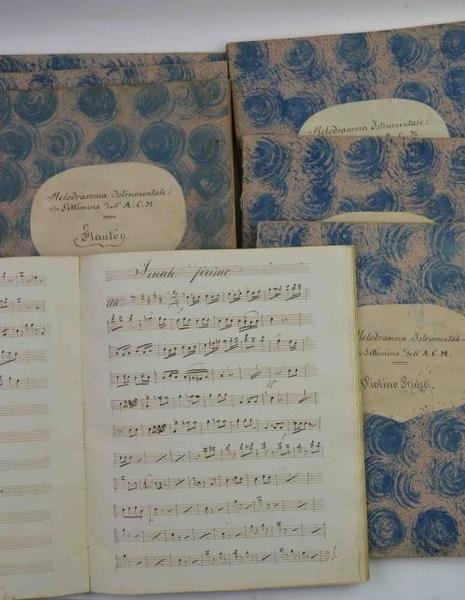 Melodramma Istrumentale
in Settimino dell' A. C. M.
Flauto
Melodramma Istrumentale
A. C. M.
Melodramma Istrumentale
in Settimino dell' A. C. M.
Violino
Finale primo